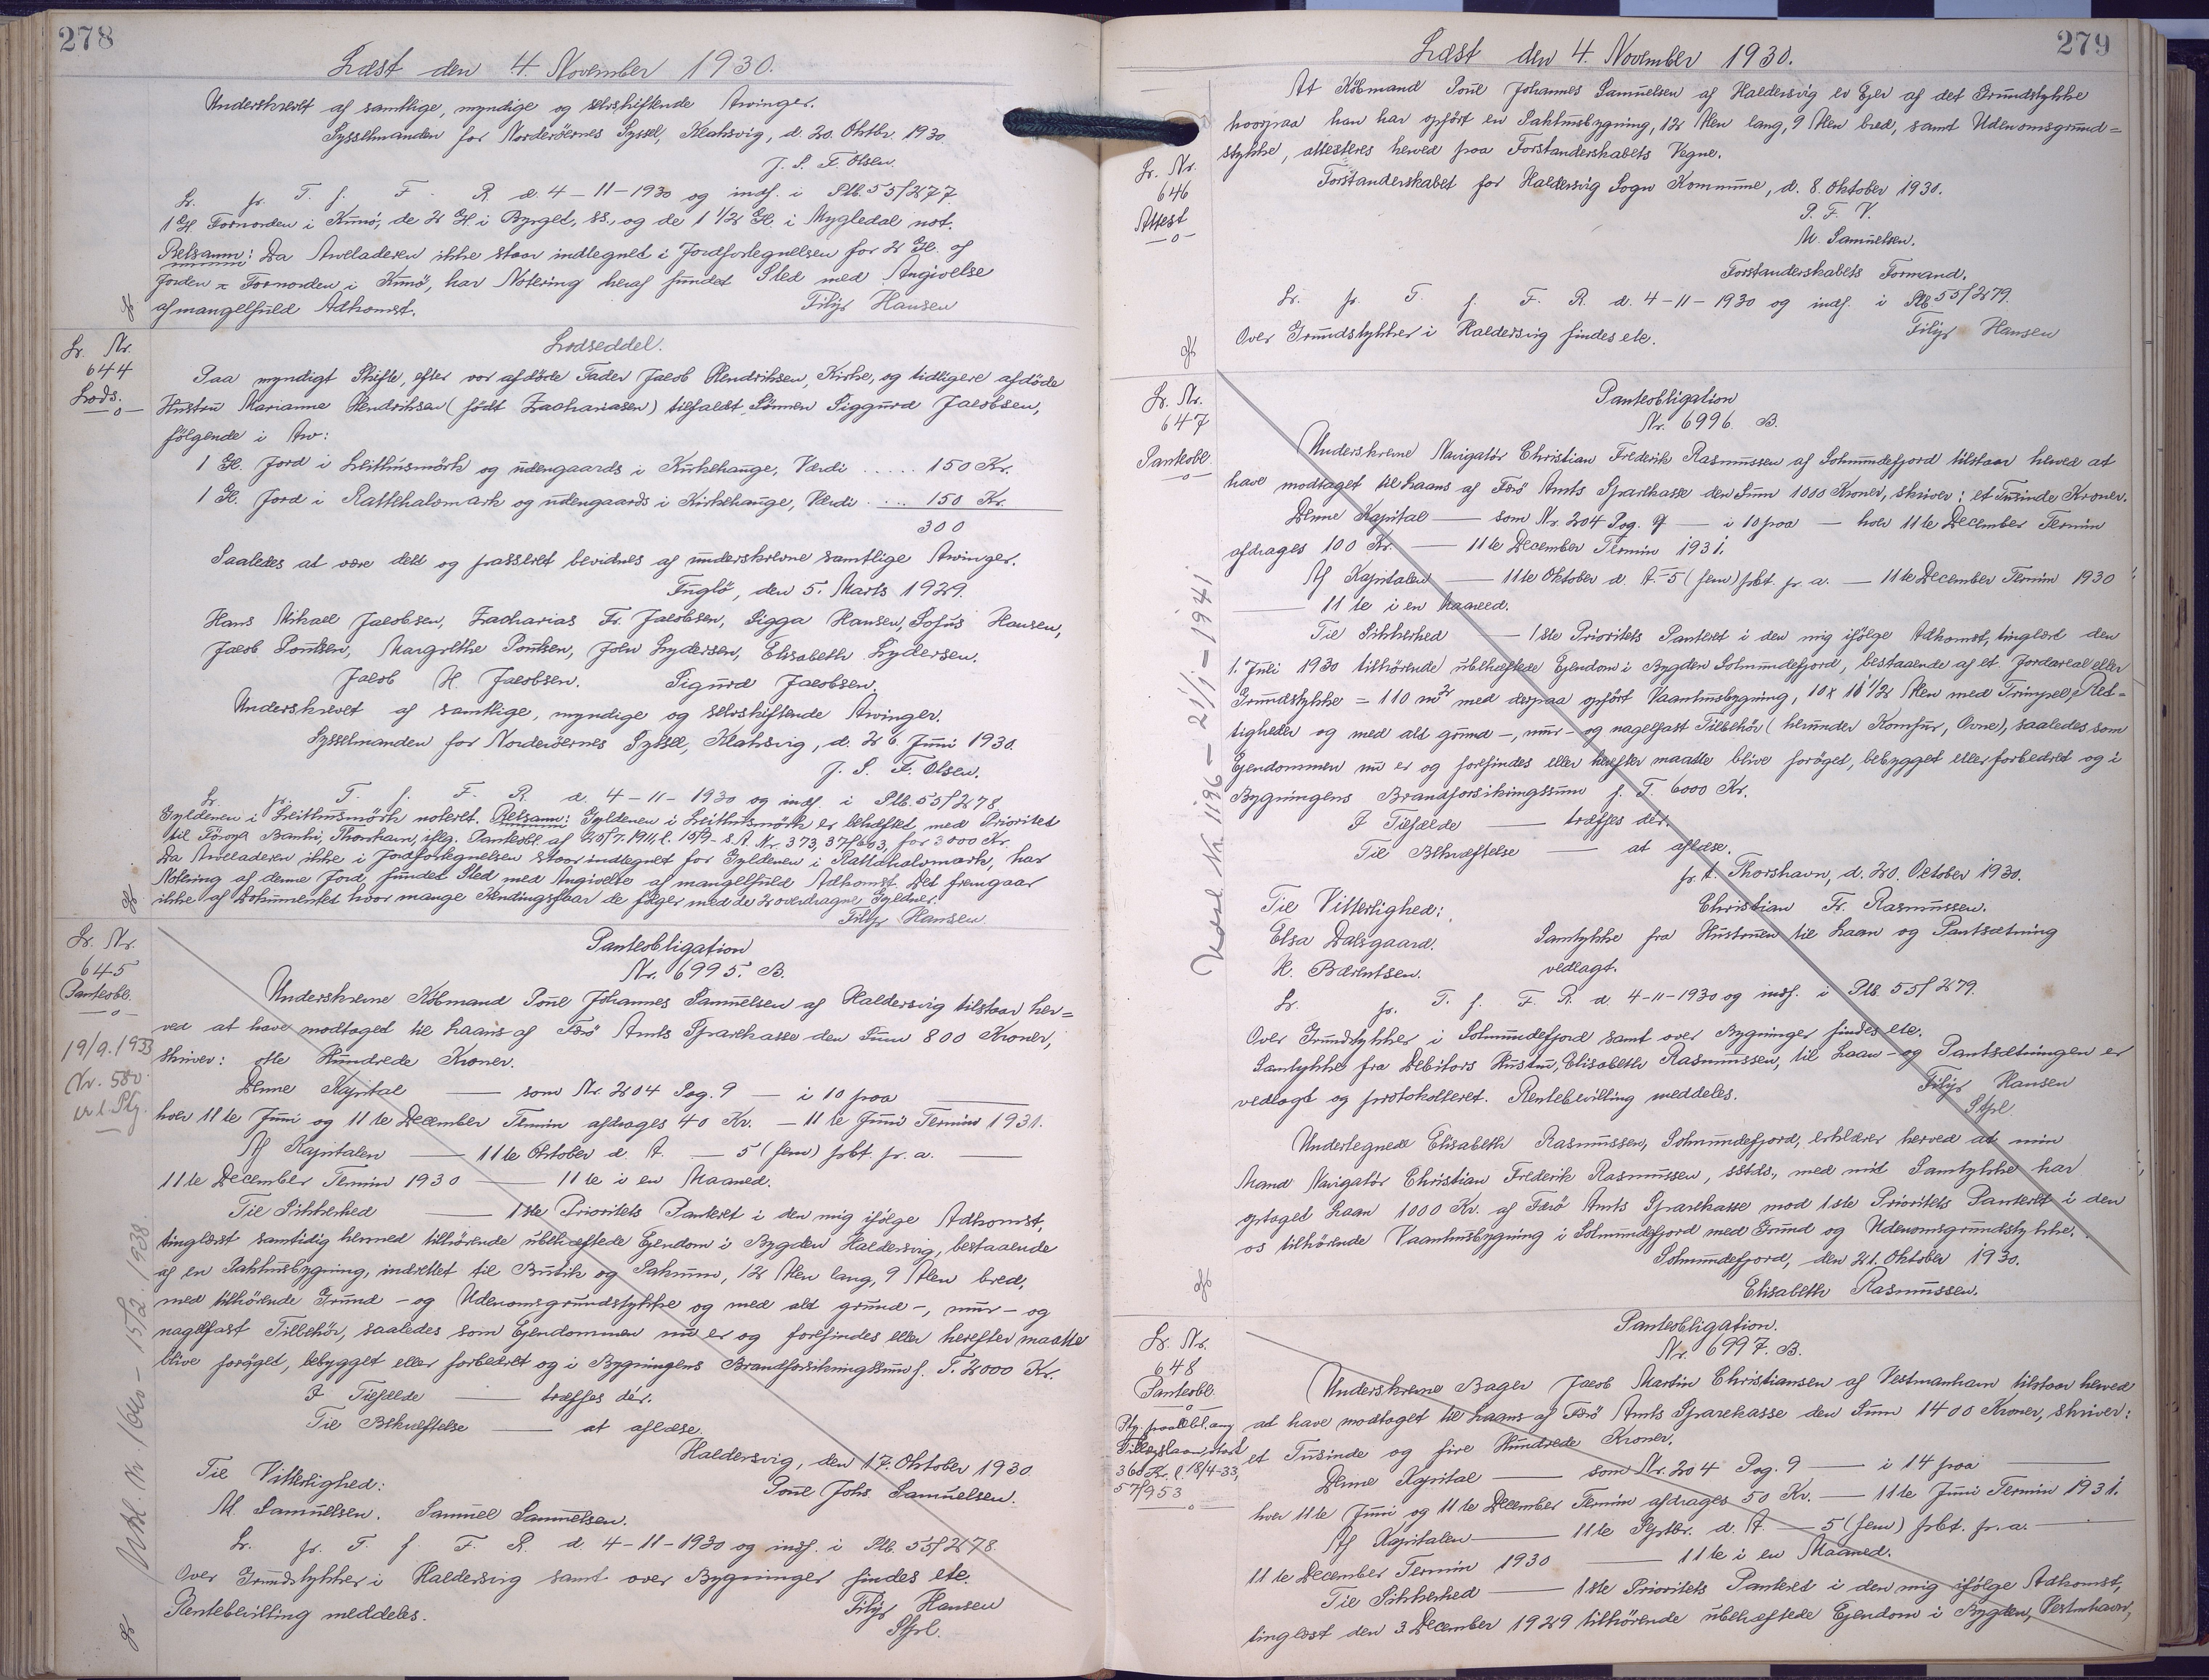 278
Læst den 4. November 1930.
Underskrevet af samtlige, myndige og selvskiftende Arvinger.
Sysselmanden for Norderöernes Syssel, Klaksvig, d. 20. Oktbr. 1930.
J. S. F. Olsen.
Lr. pr. T. f. F. R. d. 4-11-1930 og indf. i Ptb. 55/277
1 Gl. Fornorden i Kunö, de 2 Gl. i Byrget, ss., og de 1 1/2 Gl. i Mygledal not.
Retsanm: Da Arveladeren ikke staar indtegnet i Jordfortegnelsen for 2 Gl. af
Jorden Fornorden i Kunö, har Notering heraf fundet Sted med Angivelse
af mangelfuld Adkomst. Filip Hansen
Lr. Nr.
644
Lods.
Lodseddel.
Paa myndigt Skifte, efter vor afdöde Fader Jacob Hendriksen, Kirke, og tidligere afdöde
Hustru Marianne Hendriksen (födt Zachariasen) tilfaldt Sönnen Siggurd Jacobsen,
fölgende i Arv:
1 Gl. Jord i Leithusmörk og udengaards i Kirkehauge, Værdi ..... 150 Kr.
1 Gl. Jord i Rattthalomark og udengaards i Kirkehauge, Værdi .... 150 Kr.
300
Saaledes at være delt og passeret bevidnes af underskrevne samtlige Arvinger.
Fuglö, den 5. Marts 1929.
Hans Mikael Jacobsen, Zacharias Fr. Jacobsen, Sigga Hansen, Sofus Hansen,
Jacob Poulsen, Margrethe Poulsen, John Lydersen, Elisabeth Lydersen.
Jacob H. Jacobsen. Sigurd Jacobsen.
Underskrevet af samtlige, myndige og selvskiftende Arvinger.
Sysselmanden for Norderöernes Syssel, Klaksvig, d. 26. Juni 1930.
J. S. F. Olsen.
Lr. pr. T. f. F. R. d. 4-11-1930 og indf. i Ptb. 55/278
Gyldenen i Leithusmörk noteret. Retsanm: Gyldenen i Leithusmörk er behæftet med Prioritet
til Föroya Banki, Thorshavn, iflg. Pantobl. af 25/7. 1911, l. 15/9. s. A. Nr. 373, 37/663, for 3000 Kr.
Da Arveladeren ikke i Jordfortegnelsen staar indtegnet for Gyldenen i Rattthalomark, har
Notering af denne Jord fundet Sted med Angivelse af mangelfuld Adkomst. Det fremgaar
ikke af Dokumentet hvor mange Hendingsfaar de fölger med de 2 overdragne Gyldner.
Filip Hansen
Lr. Nr.
645
Panteobl.
19/9. 1933
Nr. 580
Pantobligation
Nr. 6995. B.
Underskrevne Köbmand Poul Johannes Samuelsen af Haldersvig tilstaar her=
ved at have modtaget til Laans af Færö Amts Sparekasse den Sum 800 Kroner,
skriver: otte Hundrede Kroner.
Denne Kapital — som Nr. 204 Pag. 9 — i 10 paa —
hver 11te Juni og 11te December Termin afdrages 40 Kr. — 11te Juni Termin 1931.
Af Kapitalen — 11te Oktober d. A. — 5 (fem) pct. pr. a. —
11te December Termin 1930 — 11te i en Maaned.
Til Sikkerhed — 1ste Prioritets Panteret i den mig ifölge Adkomst,
tinglæst samtidig hermed tilhörende ubehæftede Ejendom i Bygden Haldersvig, bestaaende
af en Pakhusbygning, indrettet til Butik og Pakrum, 12 Alen lang, 9 Alen bred,
med tilhörende Grund- og Udenomsgrundstykke og med alt grund-, mur- og
nagelfast Tilbehör, saaledes som Ejendommen nu er og forefindes eller herefter maatte
blive foröget, bebygget eller forbedret og i Bygningens Brandforsikringssum f. T. 2000 Kr.
I Tilfælde — træffes dér.
Til Bekræftelse — at aflæse.
Haldersvig, den 17. Oktober 1930.
Til Vitterlighed: Poul Johs Samuelsen.
M. Samuelsen. Samuel Samuelsen.
Lr. pr. T. f. F. R. d. 4-11-1930 og indf. i Ptb. 55/278.
Over Grundstykker i Haldersvig samt over Bygninger findes etc.
Rentebevilling meddeles. Filip Hansen
Stpl.
279
Læst den 4. November 1930.
Lr. Nr.
646
Attest
At Köbmand Poul Johannes Samuelsen af Haldersvig er Ejer af det Grundstykke
hvorpaa han har opfört en Pakhusbygning, 12 Alen lang, 9 Alen bred, samt Udenomsgrund=
stykke, attesteres herved paa Forstanderskabets Vegne.
Forstanderskabet for Haldersvig Sogns Kommune, d. 8. Oktober 1930.
P. F. V.
M. Samuelsen.
Forstanderskabets Formand.
Lr. pr. T. f. F. R. d. 4-11-1930 og indf. i Ptb 55/279.
Over Grundstykker i Haldersvig findes etc. Filip Hansen
Lr. Nr.
647
Panteobl.
Udsl. Nr. 1196 - 21/1-1941
Pantobligation
Nr. 6996. B.
Underskrevne Navigatör Christian Frederik Rasmussen af Solmundefjord tilstaar herved at
have modtaget til Laans af Færö Amts Sparekasse den Sum 1000 Kroner, skriver: et Tusinde Kroner.
Denne Kapital — som Nr. 204 Pag. 9 — i 10 paa — hver 11te December Termin
afdrages 100 Kr. — 11te December Termin 1931.
Af Kapitalen — 11te Oktober d. A. — 5 (fem) pct. pr. a. — 11te December Termin 1930
— 11te i en Maaned.
Til Sikkerhed — 1ste Prioritets Panteret i den mig ifölge Adkomst, tinglæst den
1. Juli 1930 tilhörende ubehæftede Ejendom i Bygden Solmundefjord, bestaaende af et Jordareal eller
Grundstykke = 110 m2 med derpaa opfört Vaanhusbygning, 10 x 11 1/2 Alen med Trimpel, Ret=
tigheder og med alt grund-, mur- og nagelfast Tilbehör (herunder Komfur, Ovne), saaledes som
Ejendommen nu er og forefindes eller herefter maatte blive foröget, bebygget eller forbedret og i
Bygningens Brandforsikringssum f. T. 6000 Kr.
I Tilfælde — træffes dér.
Til Bekræftelse — at aflæse.
pr. t. Thorshavn, d. 20. Oktober 1930.
Til Vitterlighed: Christian Fr. Rasmussen.
Elsa Dalsgaard. Samtykke fra Hustruen til Laan og Pantsætning
H. Bærentsen. vedlagt.
Lr. pr. T. f. F. R. d. 4-11-1930 og indf. i Ptb. 55/279.
Over Grundstykker i Solmundefjord samt over Bygninger findes etc.
Samtykke fra Debitors Hustru, Elisabeth Rasmussen, til Laan- og Pantsætningen er
vedlagt og protokolleret. Rentebevilling meddeles. Filip Hansen
Stpl.
Undertegnede Elisabeth Rasmussen, Solmundefjord, erklærer herved at min
Mand Navigatör Christian Frederik Rasmussen, sstds., med mit Samtykke har
optaget Laan 1000 Kr. af Færö Amts Sparekasse mod 1ste Prioritets Panteret i den
os tilhörende Vaanhusbygning i Solmundefjord med Grund og Udenomsgrundstykke.
Solmundefjord, den 21. Oktober 1930.
Elisabeth Rasmussen.
Lr. Nr.
648
Panteobl.
360 Kr. l. 18/4-33,
57/953
Pantobligation.
Nr. 6997. B.
Underskrevne Bager Jacob Martin Christiansen af Vestmanhavn tilstaar herved
at have modtaget til Laans af Færö Amts Sparekasse den Sum 1400 Kroner, skriver:
et Tusinde og fire Hundrede Kroner.
Denne Kapital — som Nr. 204 Pag. 9 — i 14 paa —
hver 11te Juni og 11te December Termin afdrages 50 Kr. — 11te Juni Termin 1931.
Af Kapitalen — 11te Septbr. d. A. — 5 (fem) pct. pr. a. —
11te December Termin 1930 — 11te i en Maaned.
Til Sikkerhed — 1ste Prioritets Panteret i den mig ifölge Adkomst,
tinglæst den 3. December 1929 tilhörende ubehæftede Ejendom i Bygden, Vestmhavn,